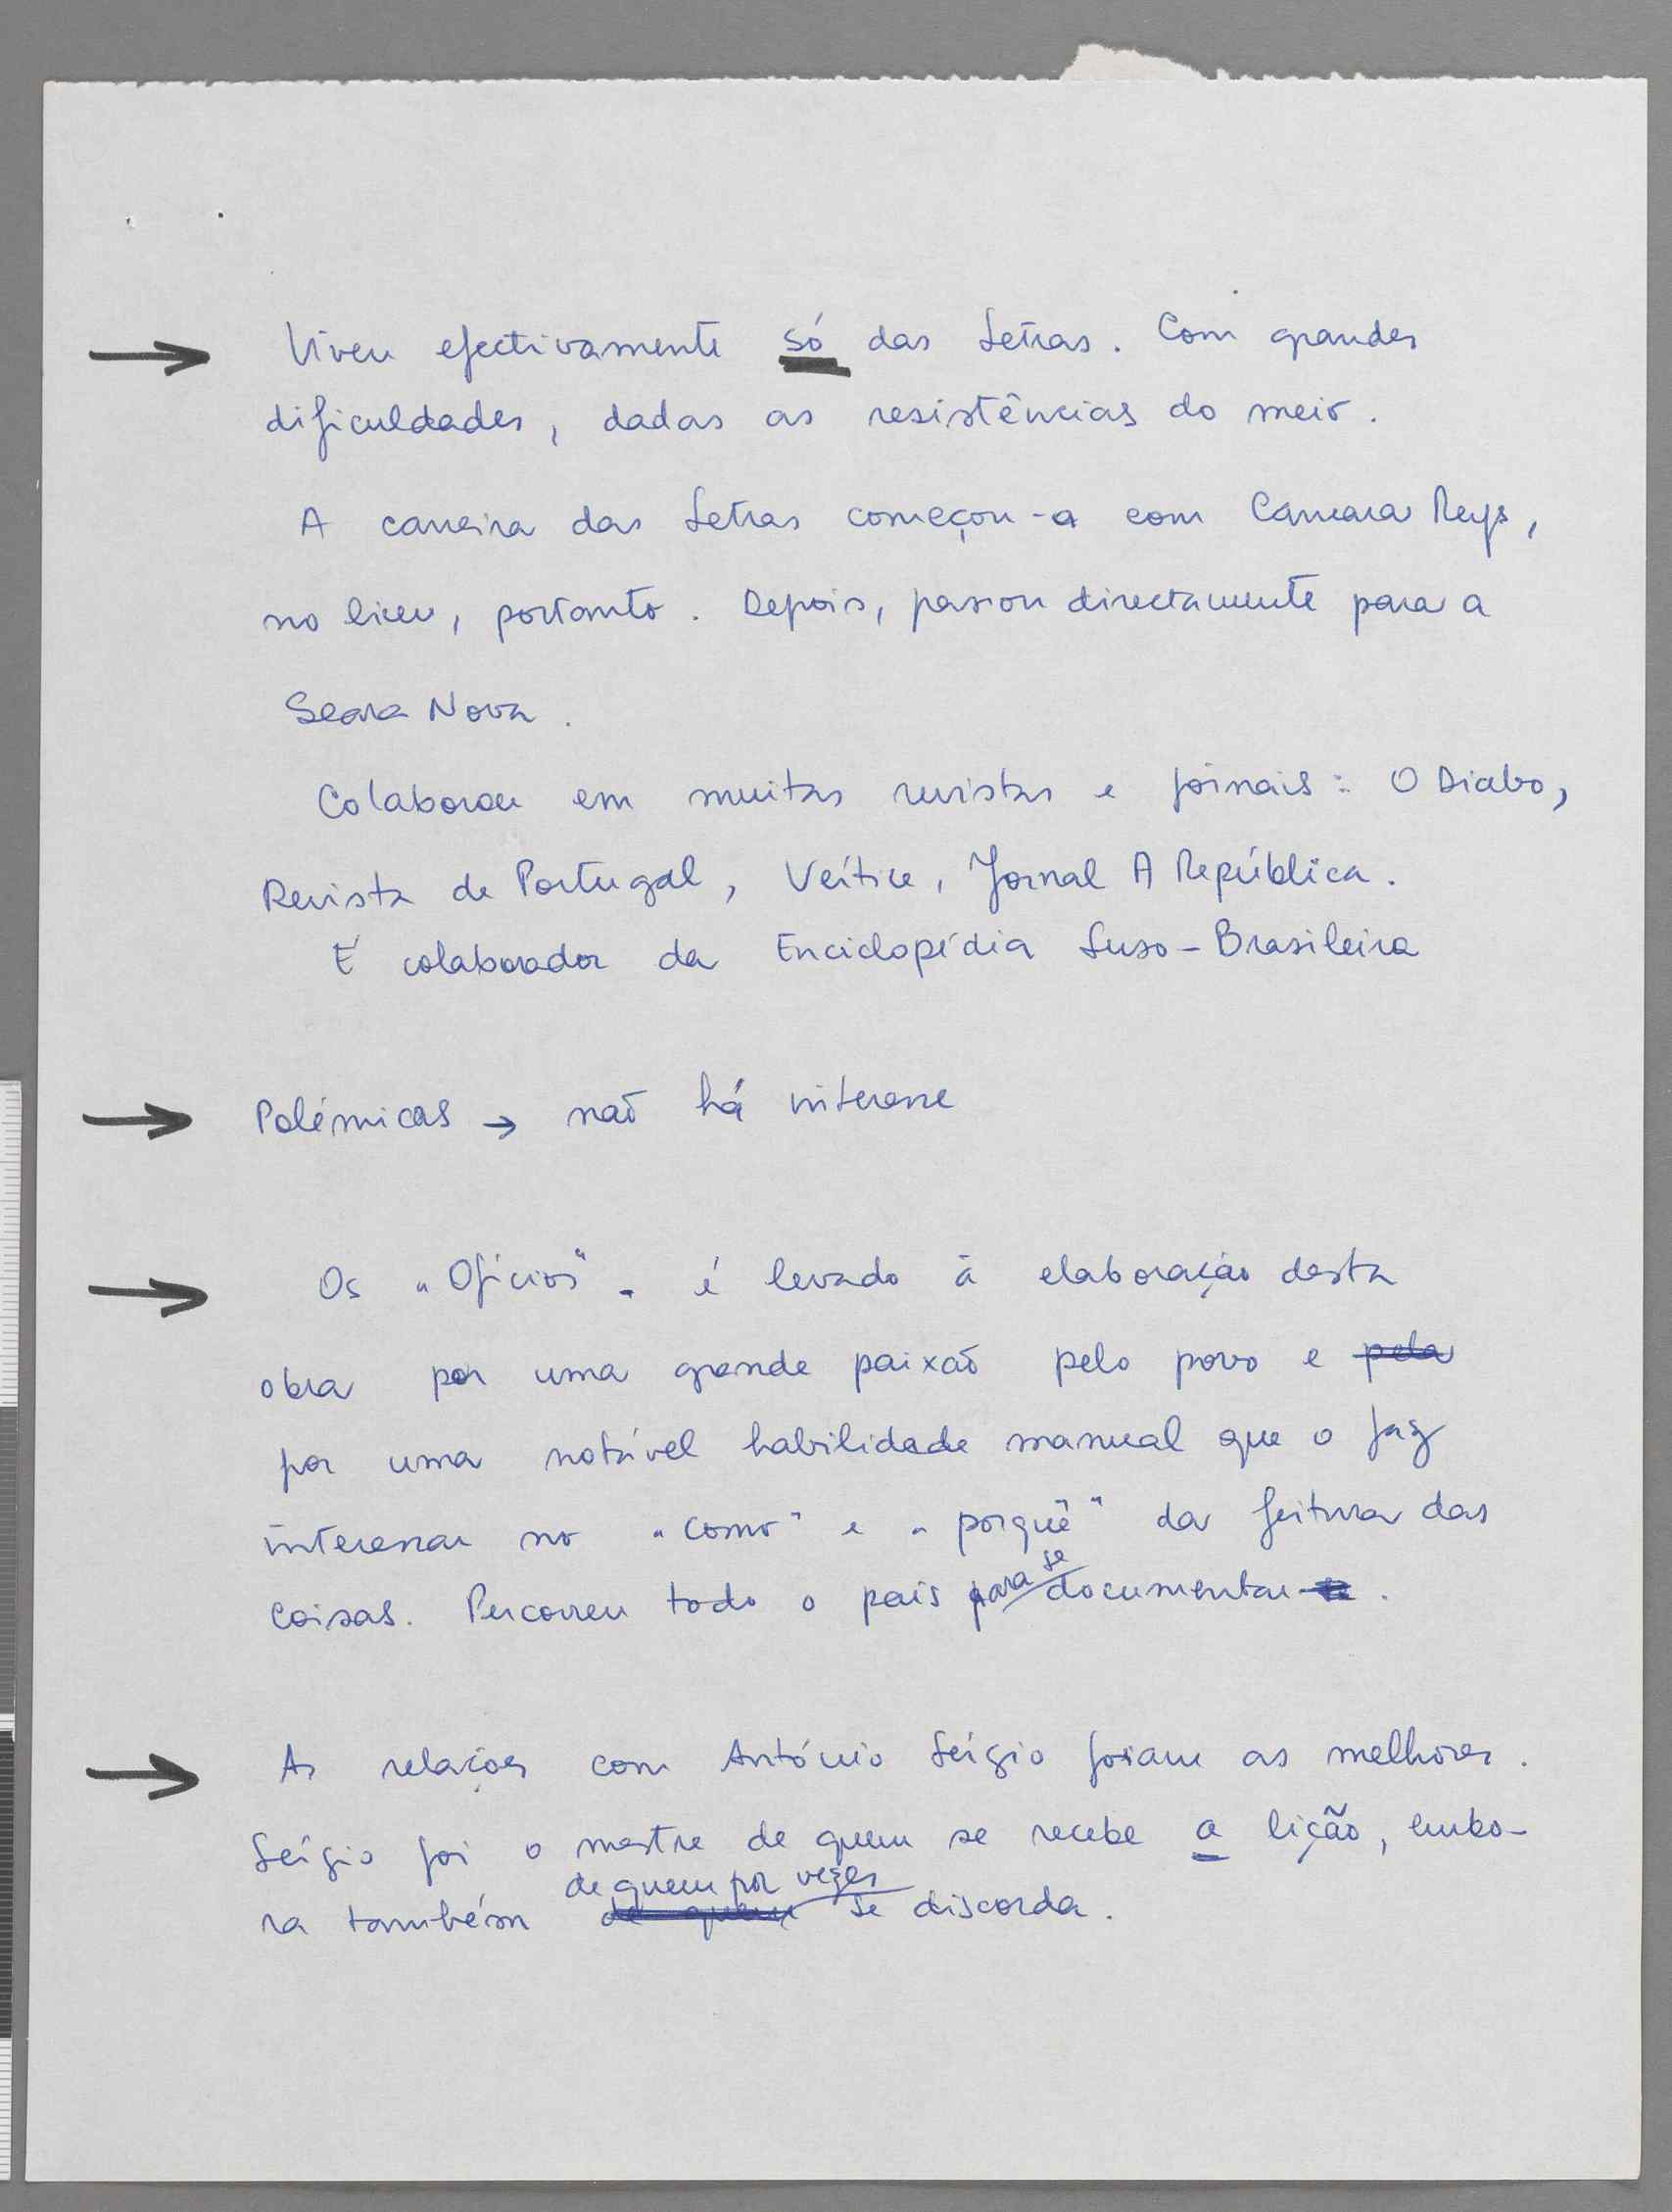 → Viveu efectivamente só das Letras. Com grandes
dificuldades, dadas as resistências do meio.
A carreira das Letras começou-a com Câmara Reys,
no liceu, portanto. Depois, passou directamente para a
Seara Nova.
Colaborou em muitas revistas e jornais: O Diabo,
Revista de Portugal, Vértice, Jornal A República.
É colaborador da Enciclopédia Luso-Brasileira
→ Polémicas → não há interesse
→ Os "Ofícios". é levado à elaboração desta
obra por uma grande paixão pelo povo e pela
por uma notável habilidade manual que o faz
interessar no "como" e "porquê" da feitura das
coisas. Percorreu todo o país para se documentar.
→ As relações com António Sérgio foram as melhores.
Sérgio foi o mestre de quem se recebe a lição, embo-
de quem por vezes
ra também de quem se discorda.